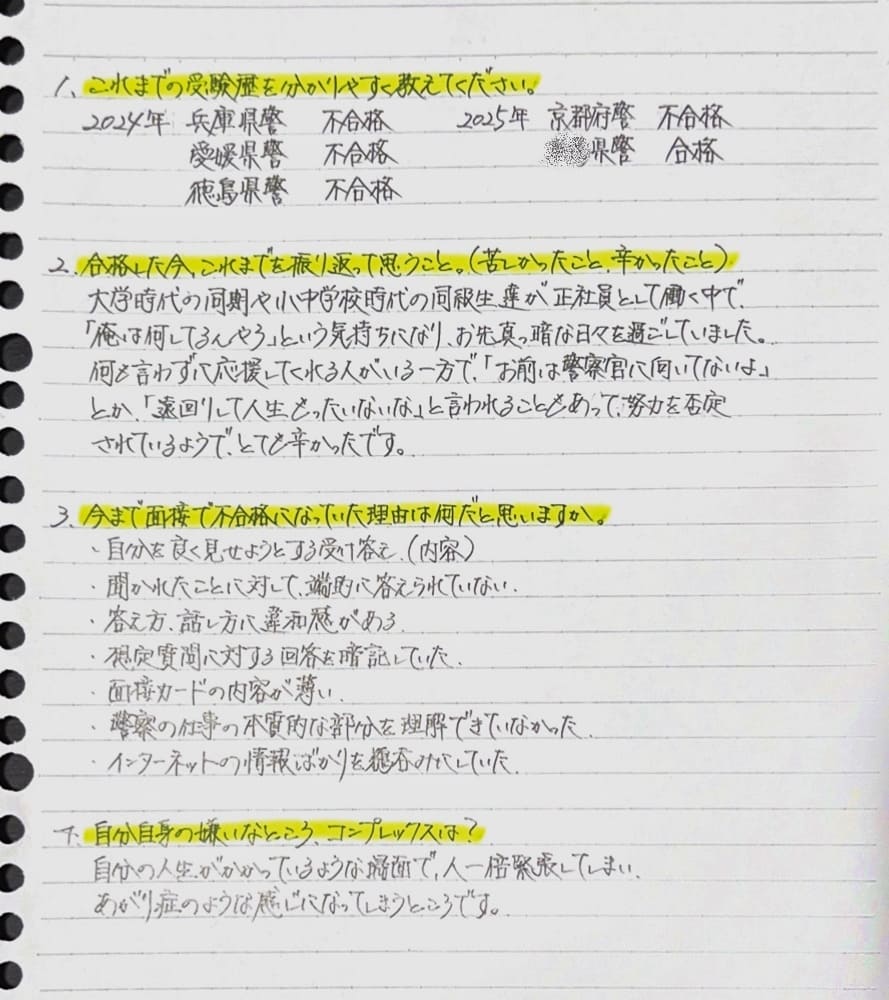 1、これまでの受験歴を分かりやすく教えてください。
2024年 兵庫県警 不合格 2025年 京都府警 不合格
愛媛県警 不合格 県警 合格
徳島県警 不合格
2、合格した今、これまでを振り返って思うこと。(苦しかったこと、辛かったこと)
大学時代の同期や小中学校時代の同級生達が正社員として働く中で、
「俺は何してるんやろ」という気持ちになり、お先真っ暗な日々を過ごしていました。
何も言わずに応援してくれる人がいる一方で、「お前は警察官に向いてないよ」
とか、「遠回りして人生もったいないな」と言われることもあって、努力を否定
されているようで、とても辛かったです。
3、今まで面接で不合格になっていた理由は何だと思いますか。
・自分を良く見せようとする受け答え.(内容)
・聞かれたことに対して、端的に答えられていない.
・答え方、話し方に違和感がある
・想定質問に対する回答を暗記していた.
・面接カードの内容が薄い.
・警察の仕事の本質的な部分を理解できていなかった.
・インターネットの情報ばかりを鵜呑みにしていた.
4、自分自身の嫌いなところ、コンプレックスは?
自分の人生がかかっているような場面で、人一倍緊張してしまい.
あがり症のような感じになってしまうところです。